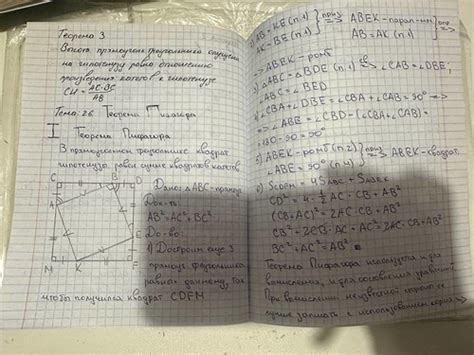 Теорема 3
Высота прямоуг. треугольника опущена
на гипотенузу равна отношению
произведения катетов к гипотенузе
CH = AC·BC / AB
Тема: 26 Теорема Пифагора
I Теорема Пифагора
В прямоугольном треугольнике квадрат
гипотенузы равен сумме квадратов катетов
C B D
A
E
M K F
Дано: △ABC - прямоуг
Док-ть:
AB²=AC²+BC²
До-во:
1) Достроим еще 3
прямоуг. треугольника
равных данному, так
чтобы получился квадрат CDFM
2) AB = KE (п.1)
AK = BE (п.1)
ABEK - парал-мм
AB = AK (п.1)
=> ABEK - ромб
3) △ABC = △BDE (п.1) => ∠CAB = ∠DBE;
∠ABC = ∠BED
4) ∠CBA + ∠DBE = ∠CBA + ∠CAB = 90° =>
=> ∠ABE = ∠CBD - (∠CBA + ∠CAB) =
= 180 - 90 = 90°
5) ABEK - ромб (п.2)
∠ABE = 90° (п.4)
=> ABEK - квадрат
6) = 4S ABC + S ABEK
CD² = 4 · ½ AC · CB + AB²
(CB + AC)² = 2AC · CB + AB²
CB² + 2CB · AC + AC² = 2AC · CB + AB²
BC² + AC² = AB²
Теорема Пифагора используется и для
вычисления, и для составления уравнений
При вычислении неизвестной стороны
лучше записать с использованием корня